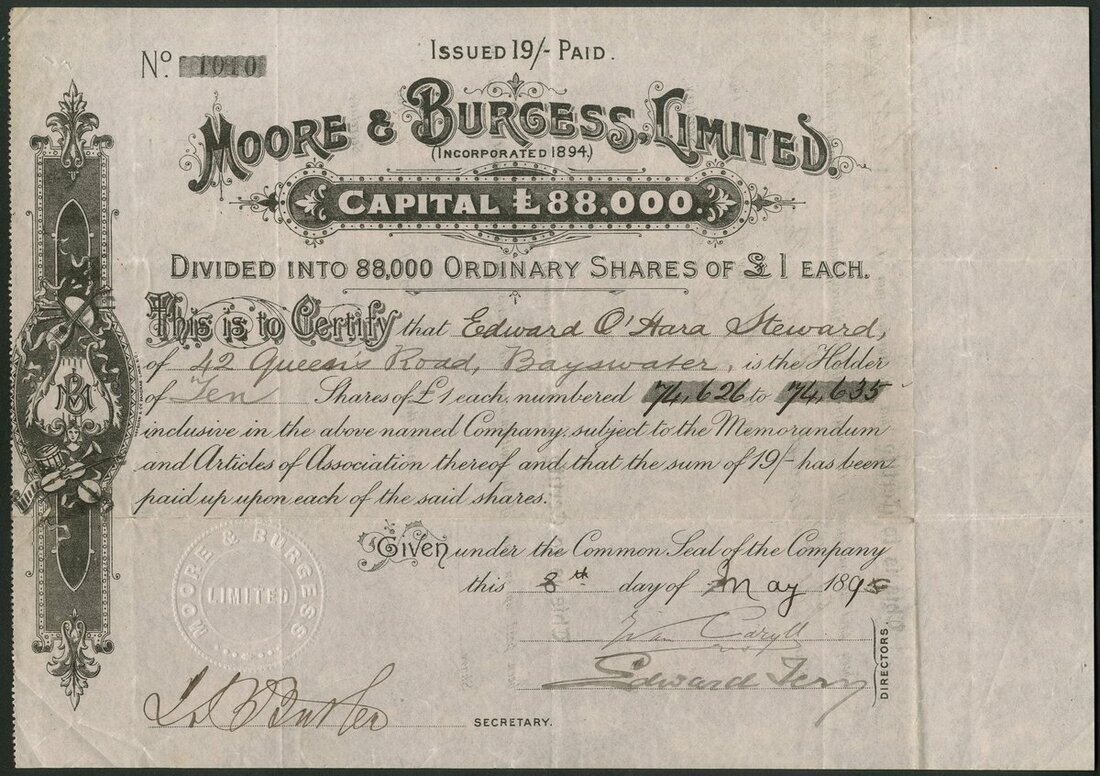 Nº 1010
ISSUED 19/- PAID.
MOORE & BURGESS, LIMITED.
(INCORPORATED 1894.)
CAPITAL £88.000.
DIVIDED INTO 88,000 ORDINARY SHARES OF £1 EACH.
This is to Certify that Edward O'Hara Steward,
of 42 Queen's Road, Bayswater, is the Holder
of Ten Shares of £1 each, numbered 74,626 to 74,635
inclusive in the above named Company, subject to the Memorandum
and Articles of Association thereof and that the sum of 19/- has been
paid up upon each of the said shares.
Given under the Common Seal of the Company
this 8th day of May 189
Ivan Caryll
Edward Terry
DIRECTORS.
SECRETARY.
MOORE & BURGESS
LIMITED
MB